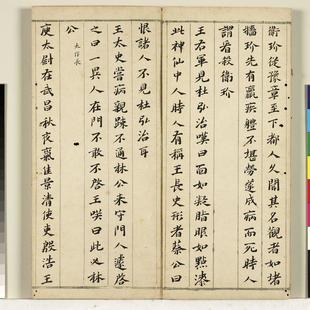 衛玠從豫章至下都人久聞其名觀者如堵
牆玠先有羸疾體不堪勞遂成病而死時人
謂看殺衛玠
王右軍見杜弘治嘆曰面如凝脂眼如點漆
此神仙中人時人有稱王長史形者蔡公曰
恨諸人不見杜弘治耳
王太史嘗病親踈不通林公来守門人遽啓
之曰一異人在門不敢不啓王咲曰此必林
公
庾太尉在武昌秋夜氣佳景清使吏殷浩王